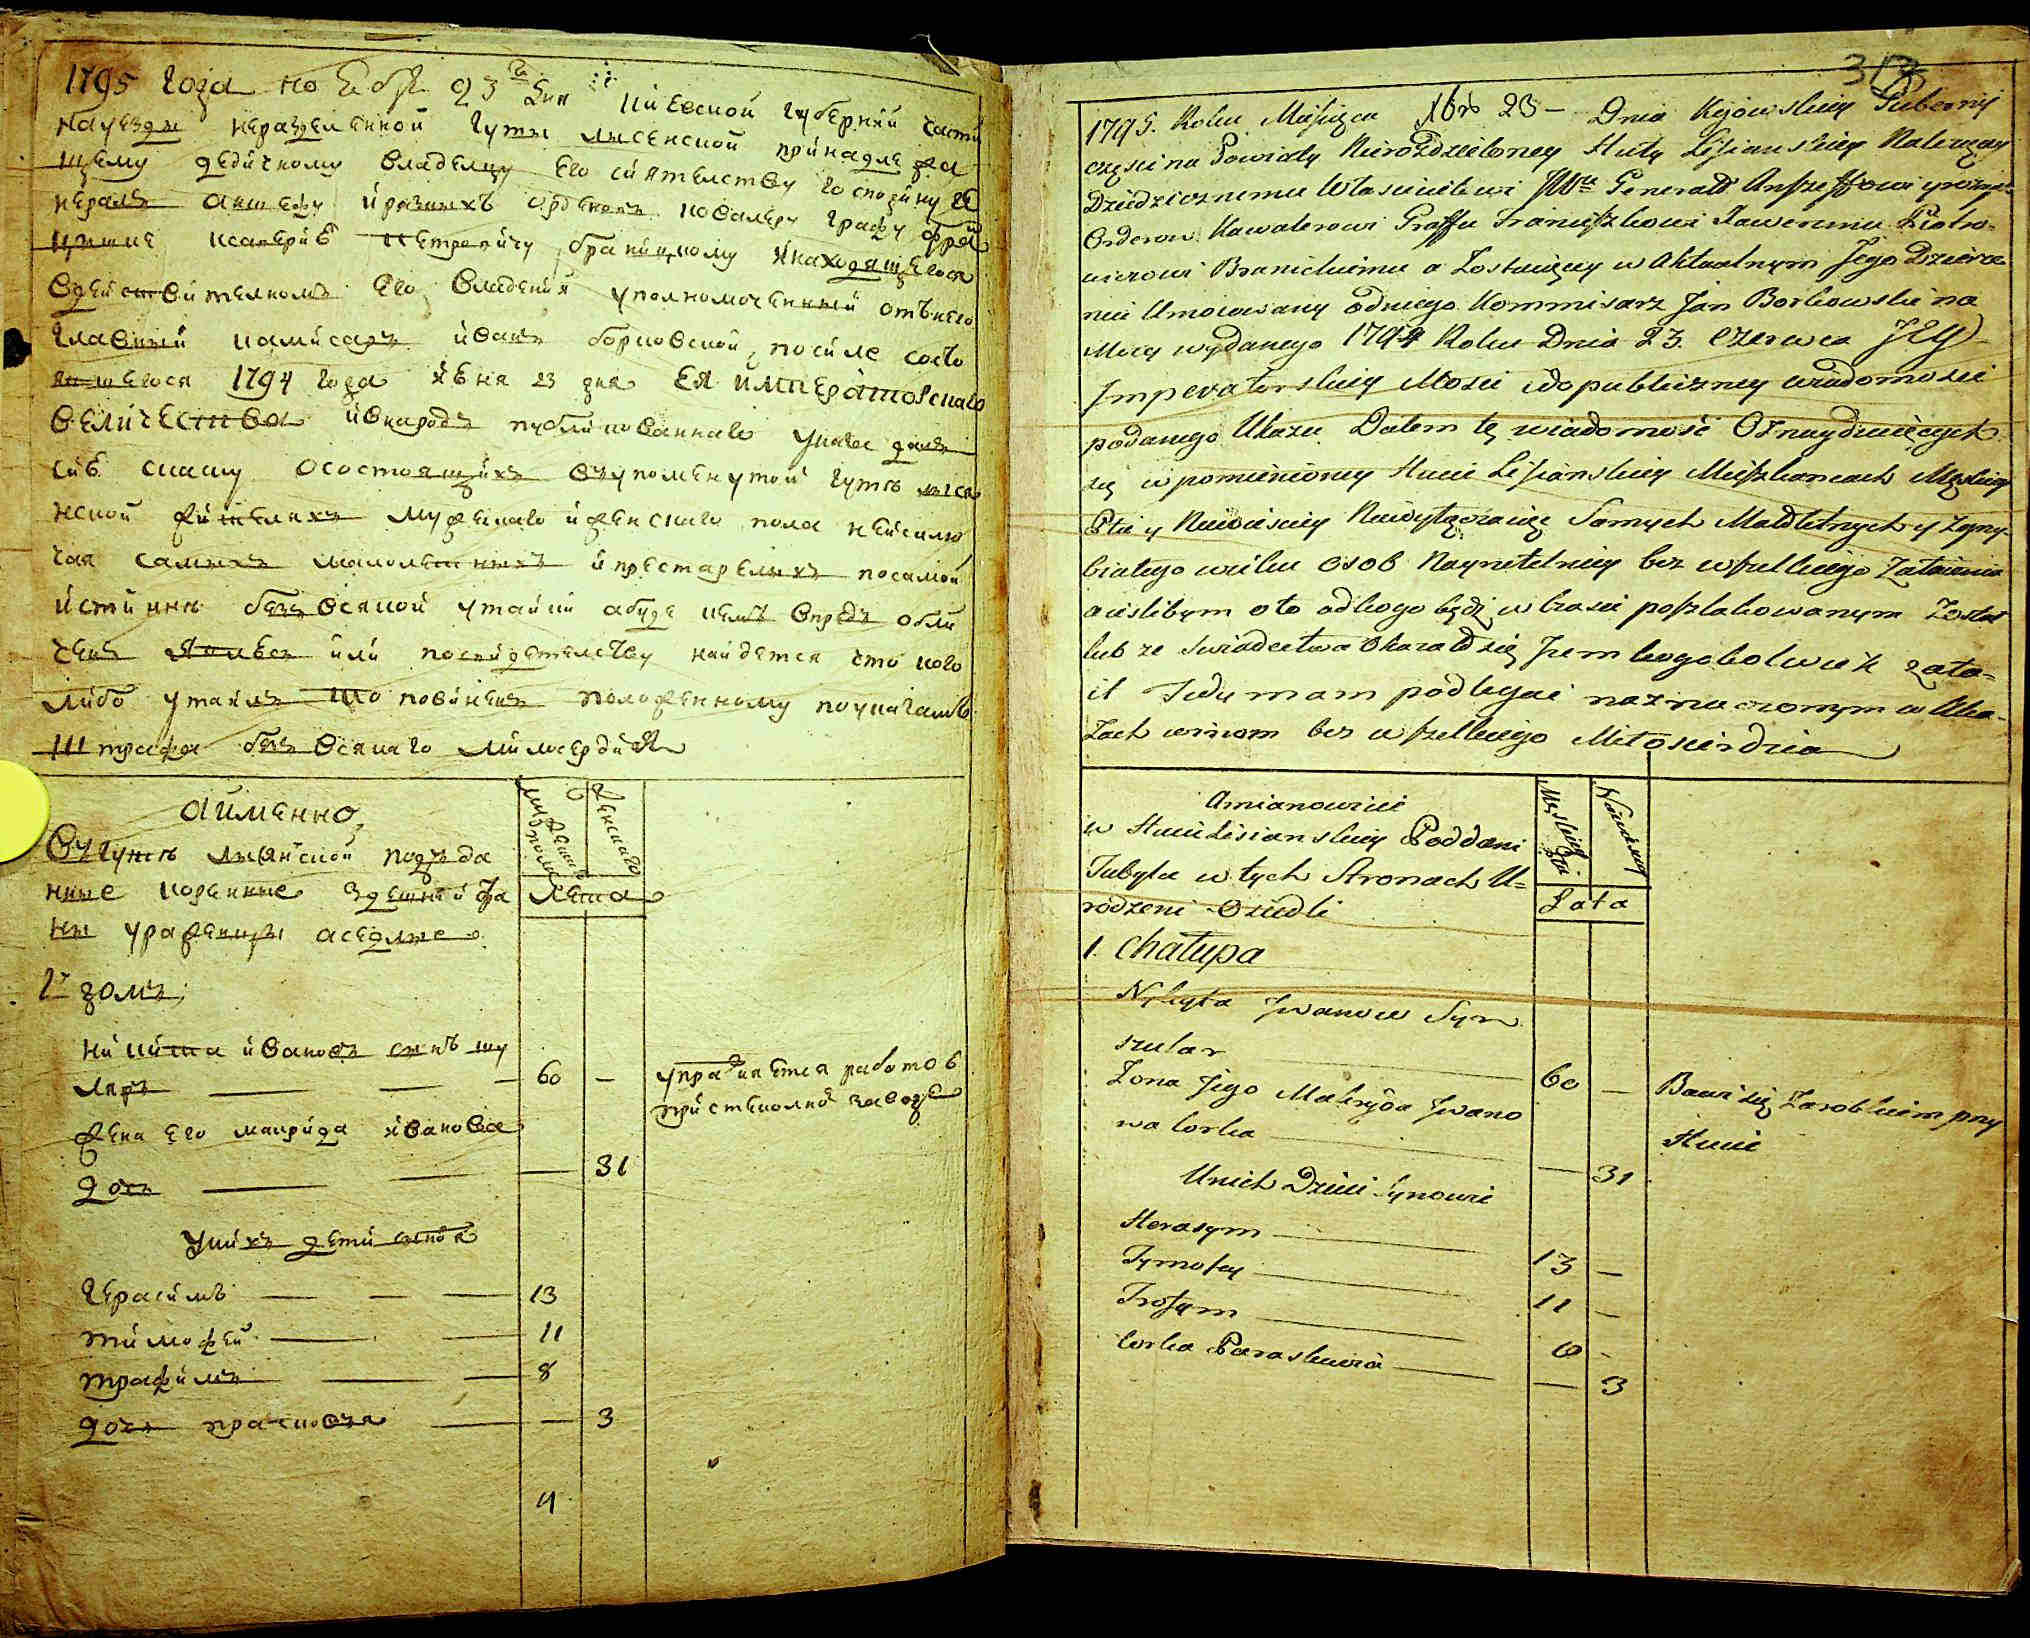 1795 года ноября 23 дня Киевской губернии части
на уезды неразделенной гуты лисенской принадлежа
щему дедичному владелцу его сиятелству господину ге
нералъ аншефу и разныхъ орденовъ кавалеру графу фра
цишке ксавериѣ Петровичу браницкому и находящегося
в действителномъ его владении уполномоченный отъ него
главный камисаръ иванъ борковской, по силе состо
явшегося 1794 года июня 23 дня ея императорскаго
величества и в народъ публикованнаго указа далъ
сию скаску о состоящихъ въ упоменутой гуте лися
нской жителяхъ мужескаго и женскаго пола не исклю
чая самыхъ малолетныхъ и престарелыхъ по самой
истинне безъ всякой утайки а буде кемъ впредь обли
ченъ или по свидетелству найдется что кого
либо утаилъ то повиненъ положенному по указамъ
штрафа безъ всякаго милосердия
а именно
Въ гуте лисянской поддъда
нные коренные здешний жа
ны ураженцы аседлые
мужеска пола
женскаго
лета
1й домъ
никита ивановъ сынъ шу
ляръ — 60 — упражняется работою
при стеколной заводе
жена его маприда иванова
дочь — 31
у нихъ дети сыновя
герасимъ — 13
тимофей — 11
трафимъ — 8
дочь прасковья — 3
4
313
1795. Roku Miesiąca 9br 23 – Dnia Kijowskiey Gubernij
części na Powiaty Nierozdzieloney Huty Lisianskiey Należący
Dziedzicznemu Właścicielowi JWu Generał Anszeffowi y różnych
Orderow Kawalerowi Graffu Franciszkowi Xaweremu Piotro-
wiczowi Branickiemu a Zostaiącey w Aktualnym Jego Dzierża
niu Umocowany od niego Kommisarz Jan Borkowski na
Mocy wydanego 1794 Roku Dnia 23. Czerwca JEY
Imperatorskiey Mości i do publiczney wiadomości
podanego Ukazu Dałem tę wiadomość O znayduiących
się w pomienioney Hucie Lisianskiey Mieszkancach Męskiey
Płci y Niewieściey Niewyłączaiąc Samych Małoletnych y Zgrzy
białego wieku osob Nayrzetelniey bez wszelkiego Zataienia
a ieslibym o to od kogo bądź w Czasie poszlakowanym Został
lub ze Swiadectwa Okazał się Żem kogokolwiek zata=
ił Tedy mam podlegać naznaczonym w Uka-
zach winom bez wszelkiego Miłosierdzia
Amianowicie
w Hucie Lisianskiey Poddani
Tubyła w tych Stronach U=
rodzeni Osiedli
Męskiey
Płci
Niewiesciey
Lata
1. Chałupa
Nykyta Iwanow Syn
szular — 60 — Bawi się Zarobkiem przy
Hucie
Żona Jego Makryda Iwano
wa Corka — 31
U nich Dzieci Synowie
Herasym — 13 —
Tymofey — 11 —
Trofym — 8 —
Corka Paraskiewia — 3